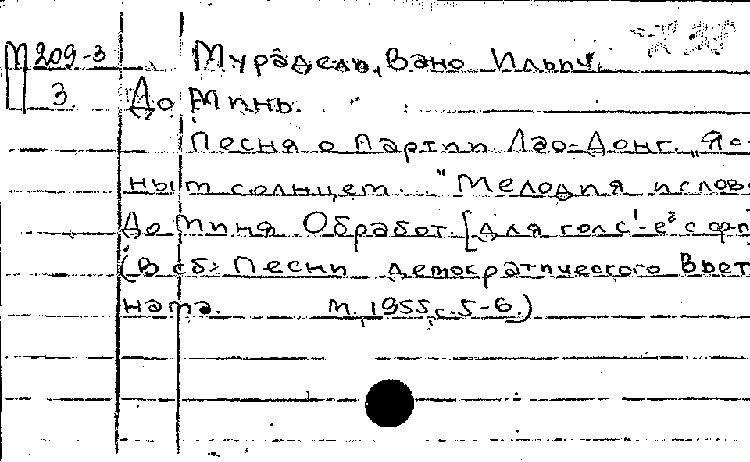 М 209-3 Мурадели, Вано Ильич.
3. До Минь.
Песня о Партии Лао-Донг. „Яс-
ным солнцем..." Мелодия и слова
До Миня. Обработ. [для голс¹-е² с ф-п
(В сб: Песни демократического Вьет-
нама. М., 1955, с. 5-6.)